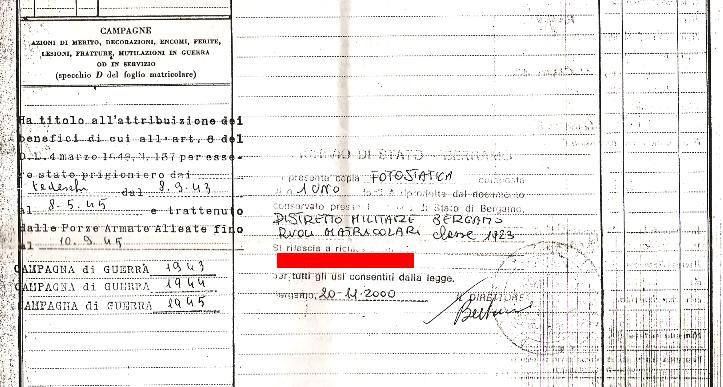 CAMPAGNE
AZIONI DI MERITO, DECORAZIONI, ENCOMI, FERITE,
LESIONI, FRATTURE, MUTILAZIONI IN GUERRA
OD IN SERVIZIO
(specchio D del foglio matricolare)
Ha titolo all'attribuzione dei
benefici di cui all'art. 6 del
D.L.4 marzo 1948,N. 137 per esse-
re stato prigioniero dai
tedeschi dal 8.9.43
al 8.5.45 e trattenuto
dalle Forze Armate Alleate fino
al 10.9.45
CAMPAGNA di GUERRA 1943
CAMPAGNA di GUERRA 1944
CAMPAGNA di GUERRA 1945
ARCHIVIO DI STATO BERGAMO
presente copia FOTOSTATICA
di n 1 UNO riprodotta dal documento
conservato di Stato di Bergamo,
DISTRETTO MILITARE BERGAMO
RUOLI MATRICOLARI classe 1923
Si rilascia a
per tutti gli usi consentiti dalla legge.
Bergamo, 20-11-2000
IL DIRETTORE